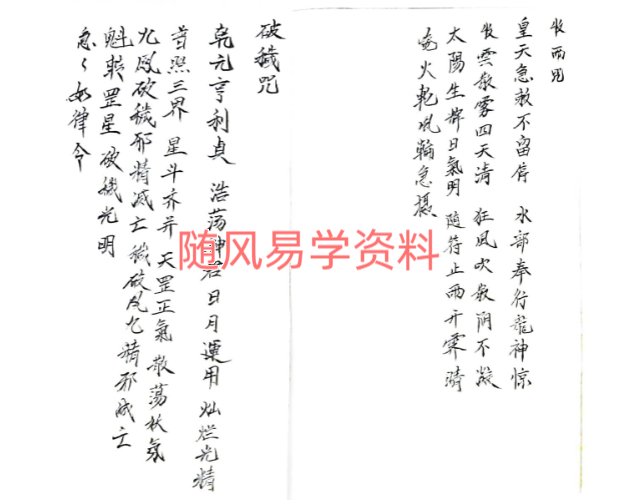 收雨咒
皇天急敕不留停 水部奉行龍神惊
收雲散霧四天清 狂風吹散阴不凝
太陽生輝日氣明 隨符止雨开霁晴
火乾 輪急攝
破穢咒
乾元亨利貞 浩荡神君日月運用灿烂光精
普照三界 星斗齐并 天罡正氣 散荡妖氛
九鳳破穢邪精滅亡穢破鳳九精邪滅亡
魁 罡星破穢光明
急々如律令
随风易学资料